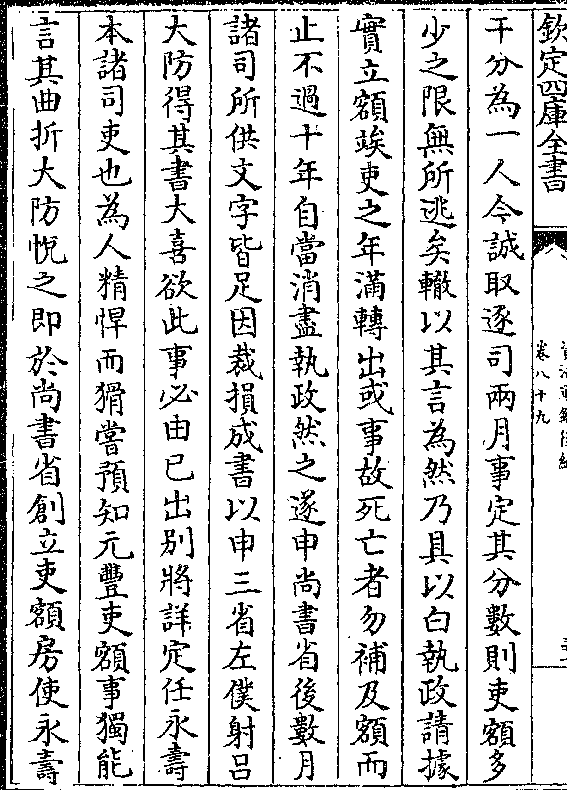 欽定四庫全書
卷八十九
干分為一人今誠取逐司兩月事定其分數則吏額多
少之限無所逃矣轍以其言為然乃具以白執政請據
實立額竢吏之年滿轉出或事故死亡者勿補及額而
止不過十年自當消盡執政然之遂申尚書省後數月
諸司所供文字皆足因裁損成書以申三省左僕射吕
大防得其書大喜欲此事必由已出别將詳定任永壽
本諸司吏也為人精悍而猾嘗預知元豐吏額事獨能
言其曲折大防悅之即於尚書省創立吏額房使永壽